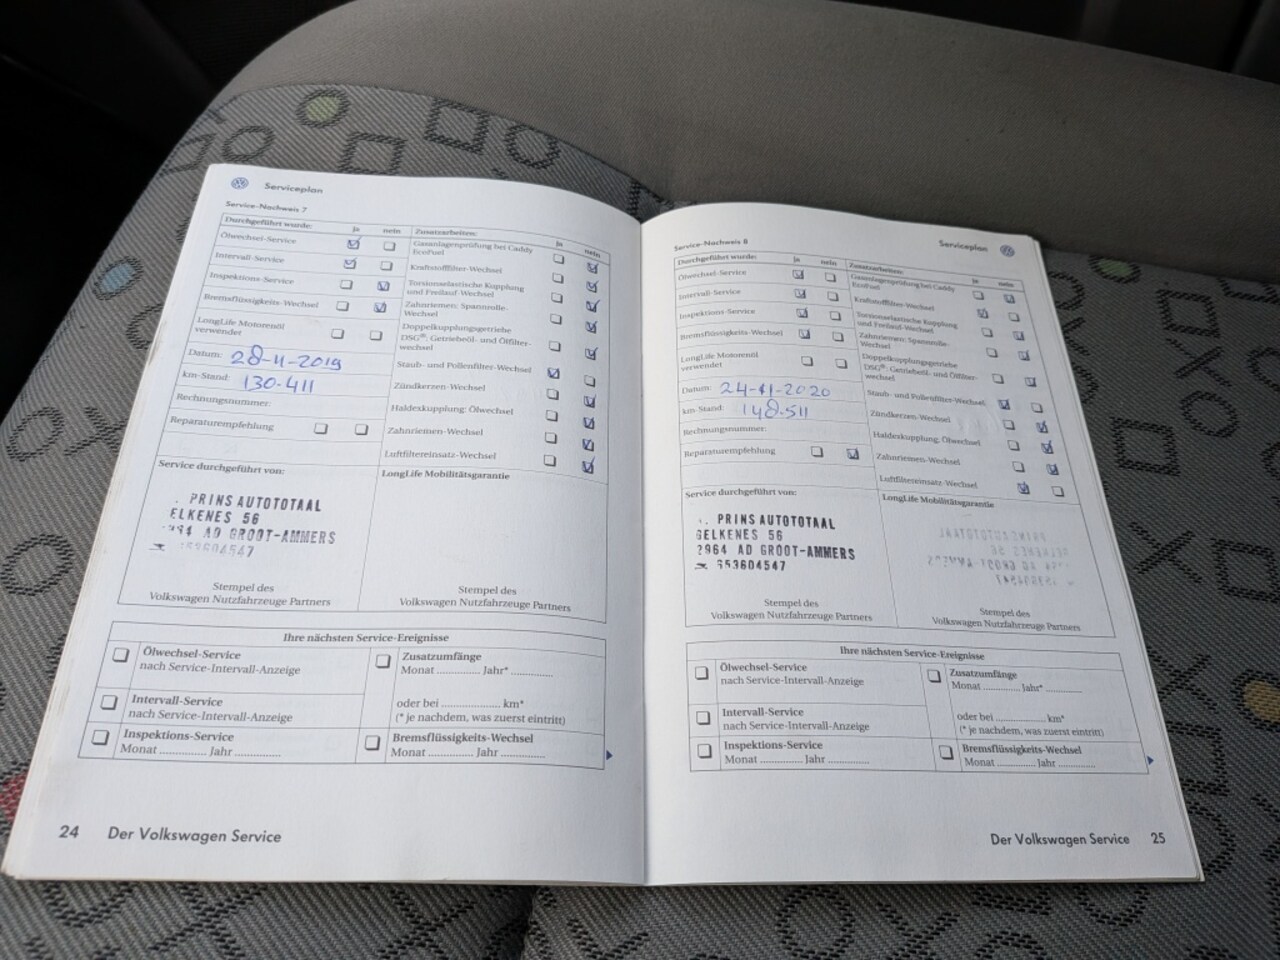 Serviceplan
Service-Nachweis 7
Durchgeführt wurde: ja nein
Ölwechsel-Service
Intervall-Service
Inspektions-Service
Bremsflüssigkeits-Wechsel
LongLife Motorenöl
verwendet
Datum: 28-11-2019
km-Stand: 130-411
Rechnungsnummer:
Reparaturempfehlung
Zusatzarbeiten: ja nein
Gasanlagenprüfung bei Caddy
EcoFuel
Kraftstofffilter-Wechsel
Torsionselastische Kupplung
und Freilauf-Wechsel
Zahnriemen: Spannrolle-
Wechsel
Doppelkupplungsgetriebe
DSG®: Getriebeöl- und Ölfilter-
wechsel
Staub- und Pollenfilter-Wechsel
Zündkerzen-Wechsel
Haldeskupplung: Ölwechsel
Zahnriemen-Wechsel
Luftfiltereinsatz-Wechsel
Service durchgeführt von:
PRINS AUTOTOTAAL
ELKENES 56
AD GROOT-AMMERS
Stempel des
Volkswagen Nutzfahrzeuge Partners
LongLife Mobilitätsgarantie
Stempel des
Volkswagen Nutzfahrzeuge Partners
Ihre nächsten Service-Ereignisse
Ölwechsel-Service
nach Service-Intervall-Anzeige
Intervall-Service
nach Service-Intervall-Anzeige
Inspektions-Service
Monat ............. Jahr .............
Zusatzumfänge
Monat ............. Jahr* .............
oder bei .................. km*
(* je nachdem, was zuerst eintritt)
Bremsflüssigkeits-Wechsel
Monat ............. Jahr .............
24 Der Volkswagen Service
Serviceplan
Service-Nachweis 8
Durchgeführt wurde: ja nein
Ölwechsel-Service
Intervall-Service
Inspektions-Service
Bremsflüssigkeits-Wechsel
LongLife Motorenöl
verwendet
Datum: 24-11-2020
km-Stand: 148.511
Rechnungsnummer:
Reparaturempfehlung
Zusatzarbeiten: ja nein
Gasanlagenprüfung bei Caddy
EcoFuel
Kraftstofffilter-Wechsel
Torsionselastische Kupplung
und Freilauf-Wechsel
Zahnriemen: Spannrolle-
Wechsel
Doppelkupplungsgetriebe
DSG®: Getriebeöl- und Ölfilter-
wechsel
Staub- und Pollenfilter-Wechsel
Zündkerzen-Wechsel
Haldeskupplung: Ölwechsel
Zahnriemen-Wechsel
Luftfiltereinsatz-Wechsel
Service durchgeführt von:
PRINS AUTOTOTAAL
GELKENES 56
2964 AD GROOT-AMMERS
Stempel des
Volkswagen Nutzfahrzeuge Partners
LongLife Mobilitätsgarantie
Stempel des
Volkswagen Nutzfahrzeuge Partners
Ihre nächsten Service-Ereignisse
Ölwechsel-Service
nach Service-Intervall-Anzeige
Intervall-Service
nach Service-Intervall-Anzeige
Inspektions-Service
Monat ............. Jahr .............
Zusatzumfänge
Monat ............. Jahr* .............
oder bei .................. km*
(* je nachdem, was zuerst eintritt)
Bremsflüssigkeits-Wechsel
Monat ............. Jahr .............
Der Volkswagen Service 25